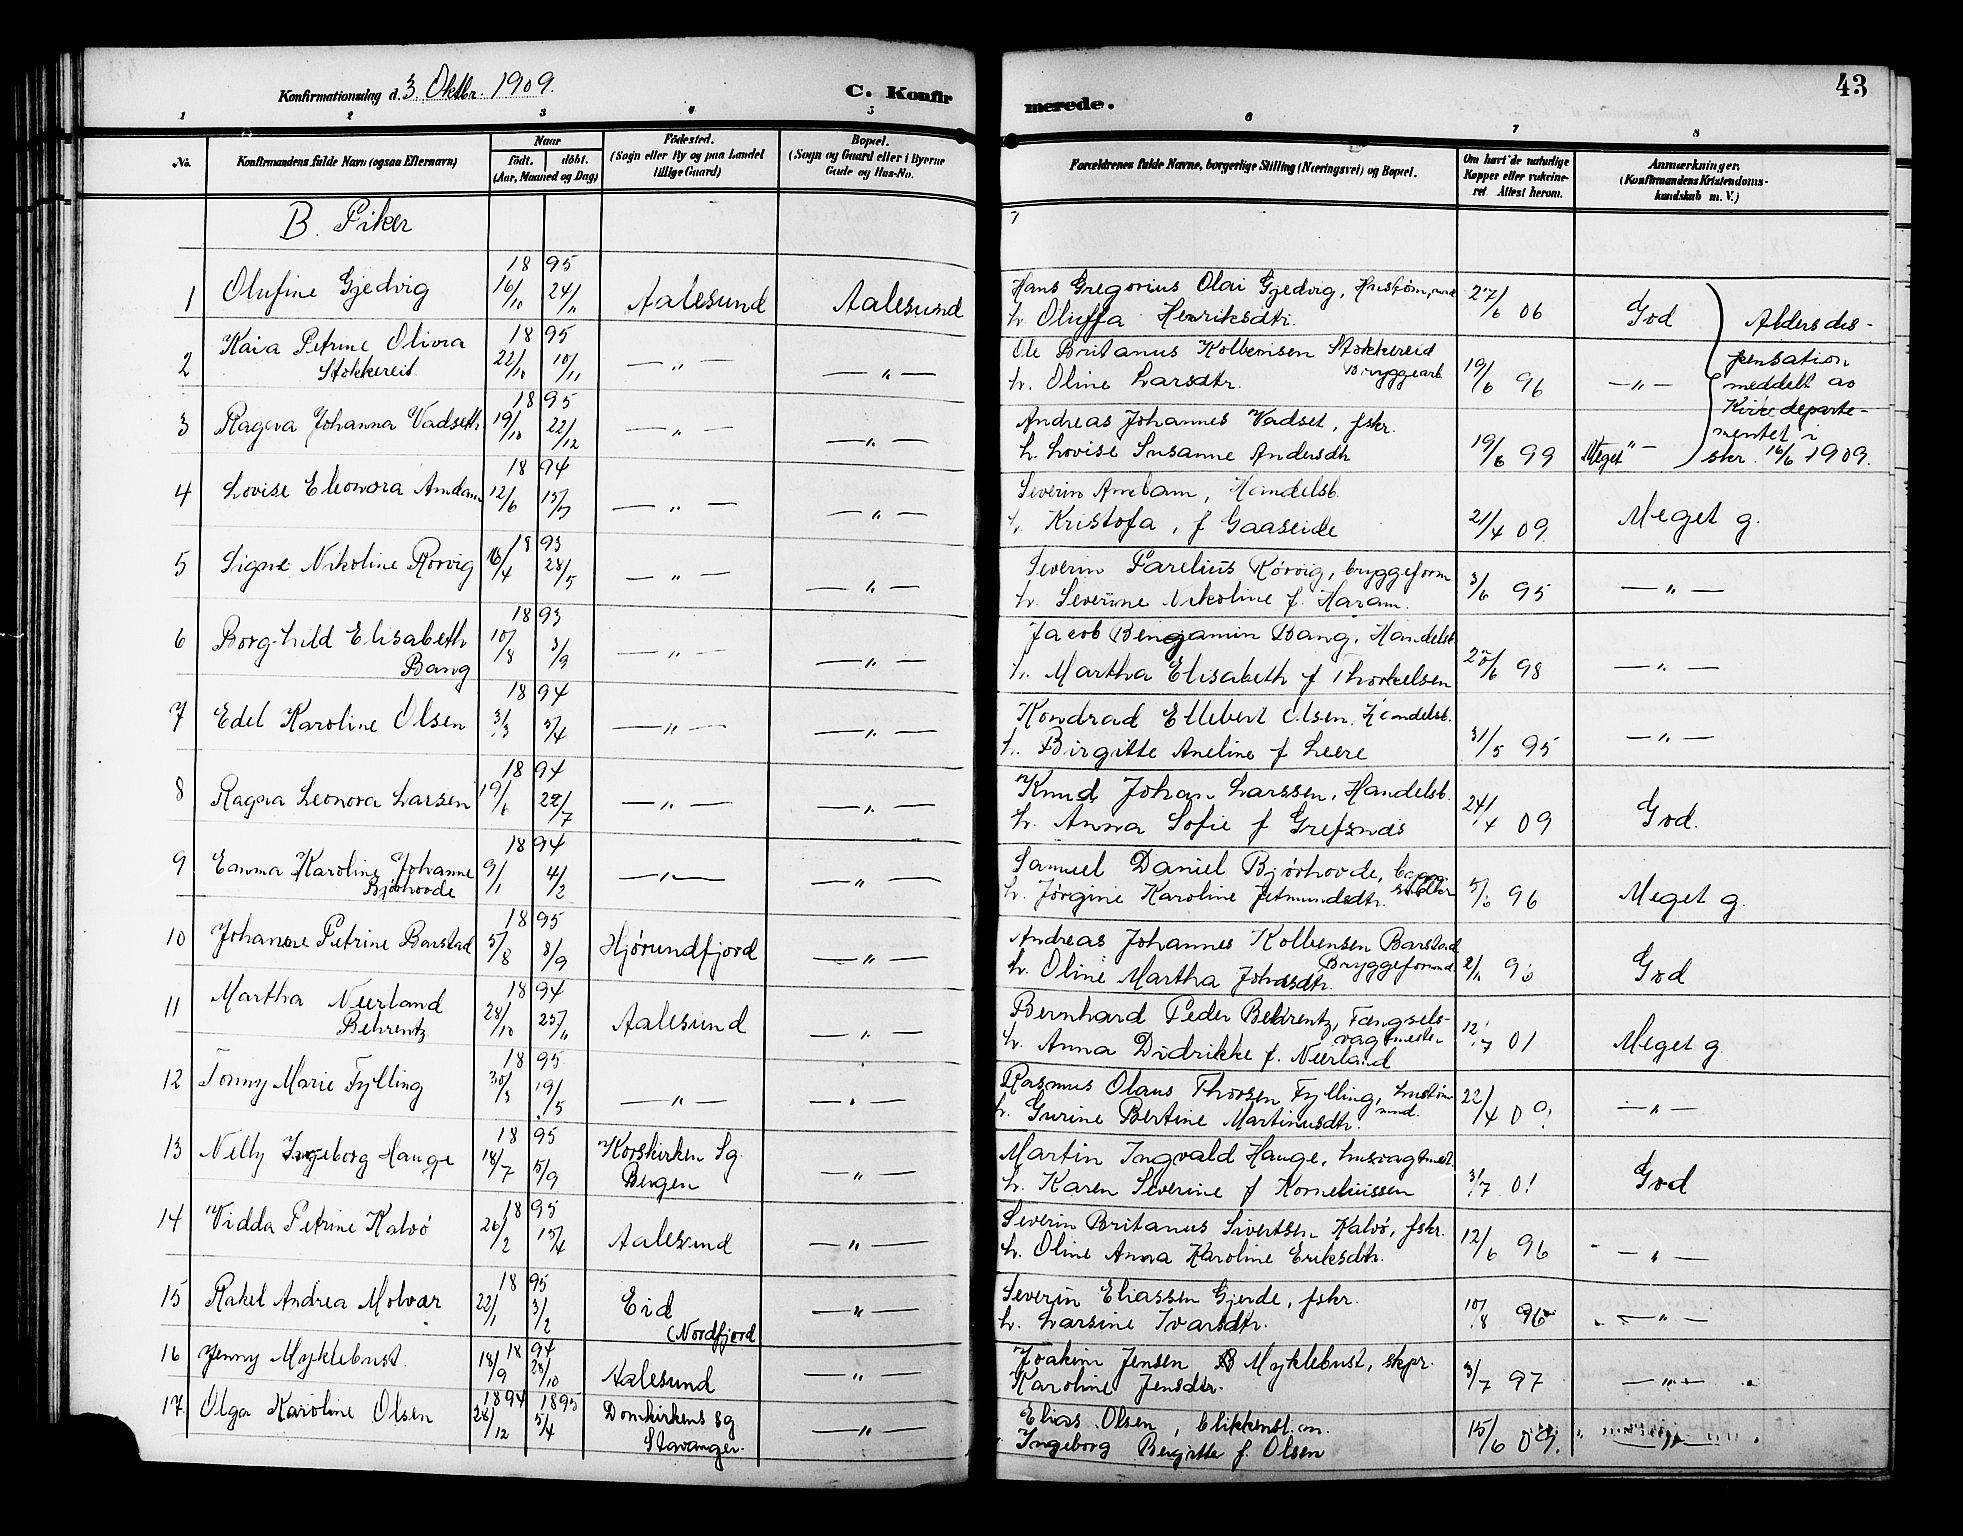 43
Konfirmationsdag d. 3. Oktbr. 1909.
C. Konfirmerede.
1 2 3 4 5 6 7 8
No.
Konfirmandens fulde Navn (ogsaa Efternavn)
Naar
födt. döbt.
(Aar, Maaned og Dag)
Födested.
(Sogn eller By og paa Landet
tillige Gaard)
Bopæl.
(Sogn og Gaard eller i Byerne
Gade og Hus-No.
Forældrenes fulde Navne, borgerlige Stilling (Næringsvei) og Bopæl.
Om havt de naturlige
Kopper eller vakcine-
ret Attest herom.
Anmærkninger.
(Konfirmandens Kristendoms-
kundskab m. V.)
B. Piker
18 95
1 Olufine Gjedvig 16/10 24/11 Aalesund Aalesund
Hans Gregorius Olai Gjedvig,
h. Oluffa Henriksdtr. 27/6 06 God
18 95
2 Kaia Petrine Olivia 22/10 10/11 — „ — — „ —
Stokkereit
Ole Britanus Kolbensen Stokkereid
Bryggearb.
h. Oline Larsdtr. 19/6 96 — „ —
18 95
3 Ragna Johanna Vadseth 19/10 22/12 — „ — — „ —
Andreas Johannes Vadset, fskr.
h. Lovise Susanne Andersdtr 19/6 99 Meget „ —
Aldersdis-
pensation
meddelt av
Kirkedeparte-
mentet i
skr. 16/6 1909.
18 94
4 Lovise Eleonora Amdam 12/6 15/7 — „ — — „ —
Severin Amdam, Handelsb.
h. Kristofa, f Gaaseide 21/4 09. Meget g.
18 93
5 Signe Nikoline Rörvig 16/4 28/5 — „ — — „ —
Severin Parelius Rörvig, bryggeform
h. Severine Nikoline f. Haram. 3/6 95 — „ —
18 93
6 Borghild Elisabeth 10/8 3/9 — „ — — „ —
Bang
Jacob Bengamin Bang, Handelsb.
h. Martha Elisabeth f Thorkelsen 20/6 98 — „ —
18 94
7 Edel Karoline Olsen 3/3 5/4 — „ — — „ —
Kondrad Ellebert Olsen, Handelsb.
h. Birgitte Aneline f Leere 31/5 95 — „ —
18 94
8 Ragna Leonora Larsen 19/6 22/7 — „ — — „ —
Knud Johan Larssen, Handelsb.
h. Anna Sofie f Grefsnæs 24/4 09 God.
18 94
9 Emma Karoline Johanne 9/1 4/2 — „ — — „ —
Björhovde
Samuel Daniel Bjørhovde,
h. Jørgine Karoline Jetmundsdtr. 96 Meget g.
18 95
10 Johanne Petrine Barstad 5/8 8/9 Hjörundfjord — „ —
Andreas Johannes Kolbensen Barstad
Bryggeformd
h. Oline Martha Johansdtr. God
18 94
11 Martha Neerland 28/10 25/11 Aalesund — „ —
Behrentz
Bernhard Peder Behrentz, Fængsels-
vagtmester
h. Anna Didrikke f. Neerland 12/7 01 Meget g
18 95
12 Tonny Marie Fylling 30/3 19/5 — „ — — „ —
Rasmus Olaus Thorsen Fylling, hustöm
mnd.
h. Gurine Bertine Martinusdtr. 22/4 — „ —
18 95
13 Nelly Ingeborg Hauge 18/7 5/9 Korskirken Sg — „ —
Bergen
Martin Ingvald Hauge, husvagtmest.
h. Karen Severine f Korneliussen 3/7 01 God
18 95
14 Vidda Petrine Kalvö 26/2 15/4 Aalesund — „ —
Severin Britanus Sivertsen Kalvö, fskr.
h. Oline Anna Karoline Eriksdtr. 12/6 96 — „ —
18 95
15 Rakel Andrea Molvær 22/1 3/2 Eid — „ —
(Nordfjord
Severin Eliassen Gjerde, fskr.
h. Larsine Ivarsdtr. 10/8 96 — „ —
18 94
16 Jenny Myklebust 18/9 28/10 Aalesund — „ —
Joakim Jensen Myklebust, skpr.
Karoline Jensdtr. 3/7 97 — „ —
1894 1895
17. Olga Karoline Olsen 28/12 5/4 Domkirkens sg — „ —
Stavanger.
Elias Olsen, blikkensl. m.
Ingeborg Bergitte f. Olsen 15/6 09. — „ —